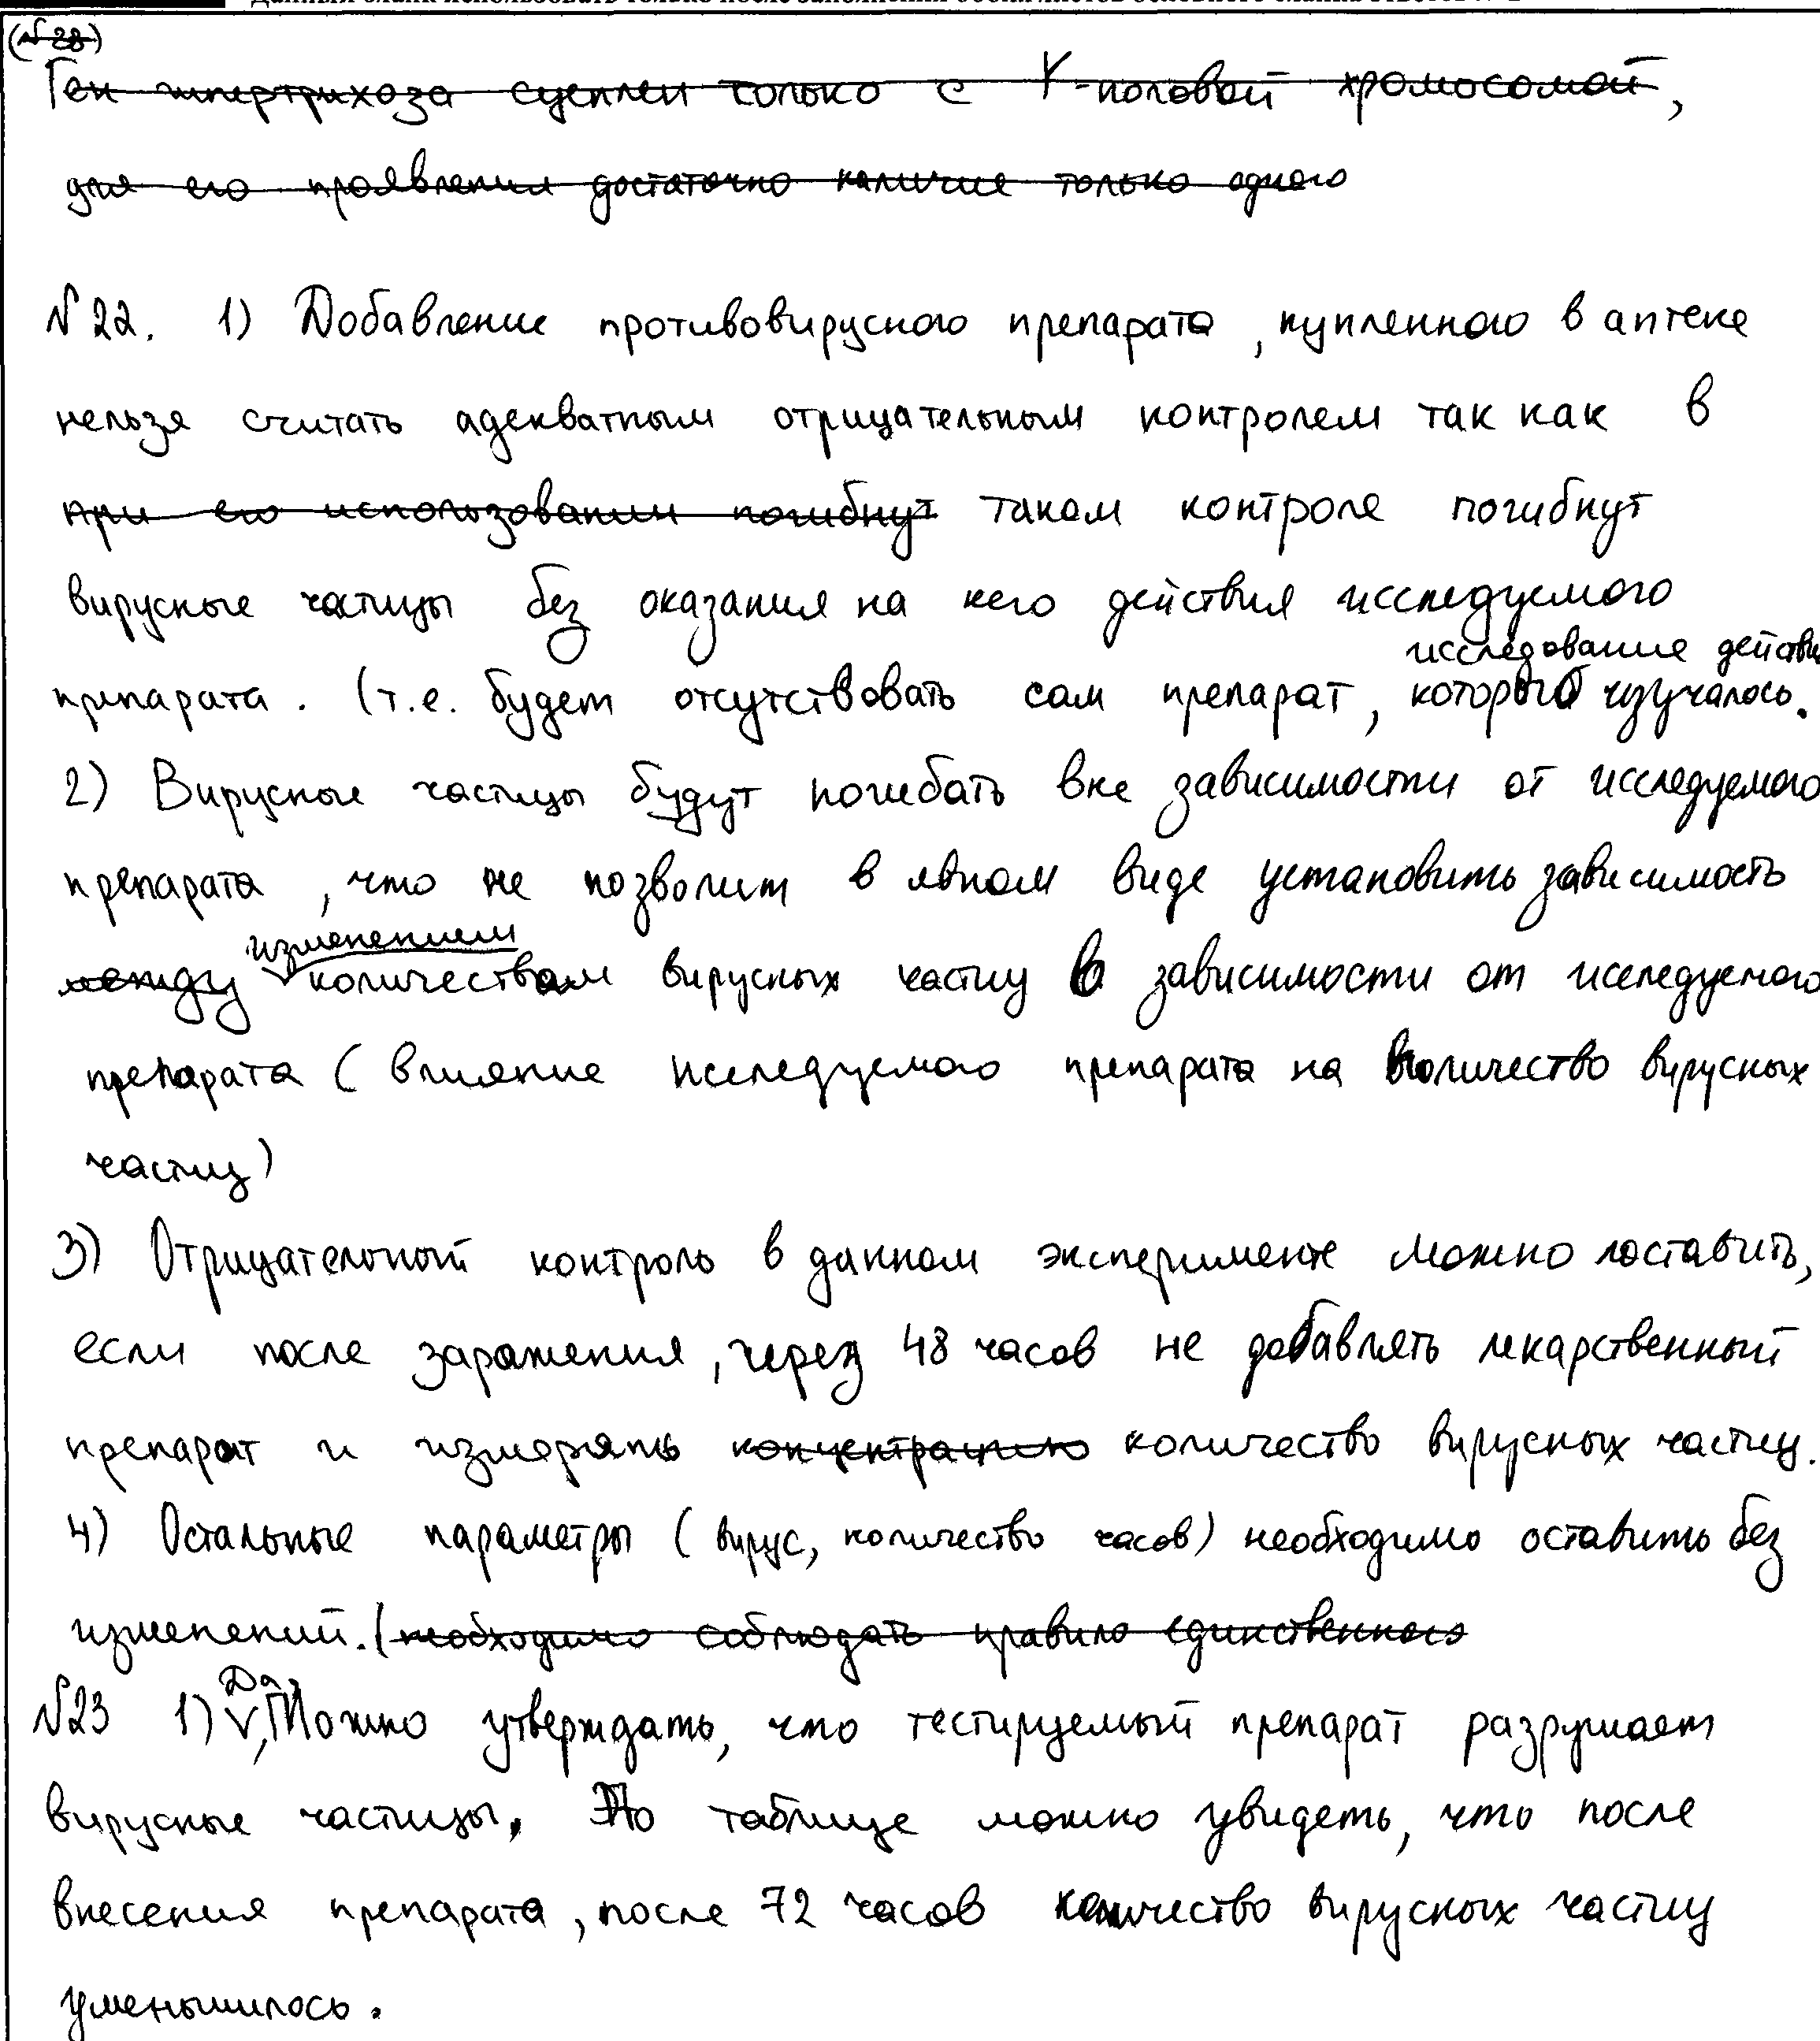 (№28)
Ген гипертрихоза сцеплен только с Y-половой хромосомой,
для его проявления достаточно наличие только одного
№22. 1) Добавление противовирусного препарата, купленного в аптеке
нельзя считать адекватным отрицательным контролем так как в
при его использовании погибнут таком контроле погибнут
вирусные частицы без оказания на него действия исследуемого
исследование действи
препарата. (т.е. будет отсутствовать сам препарат, которого изучалось.
2) Вирусные частицы будут погибать вне зависимости от исследуемого
препарата, что не позволит в явном виде установить зависимость
изменением
между количеством вирусных частиц в зависимости от исследуемого
препарата (влияние исследуемого препарата на количество вирусных
частиц)
3) Отрицательный контроль в данном эксперименте можно поставить,
если после заражения, через 48 часов не добавлять лекарственный
препарат и измерять концентрацию количество вирусных частиц.
4) Остальные параметры (вирус, количество часов) необходимо оставить без
изменений. (необходимо соблюдать правило единственного
Да,
№23 1) Можно утверждать, что тестируемый препарат разрушает
вирусные частицы. По таблице можно увидеть, что после
внесения препарата, после 72 часов количество вирусных частиц
уменьшилось.